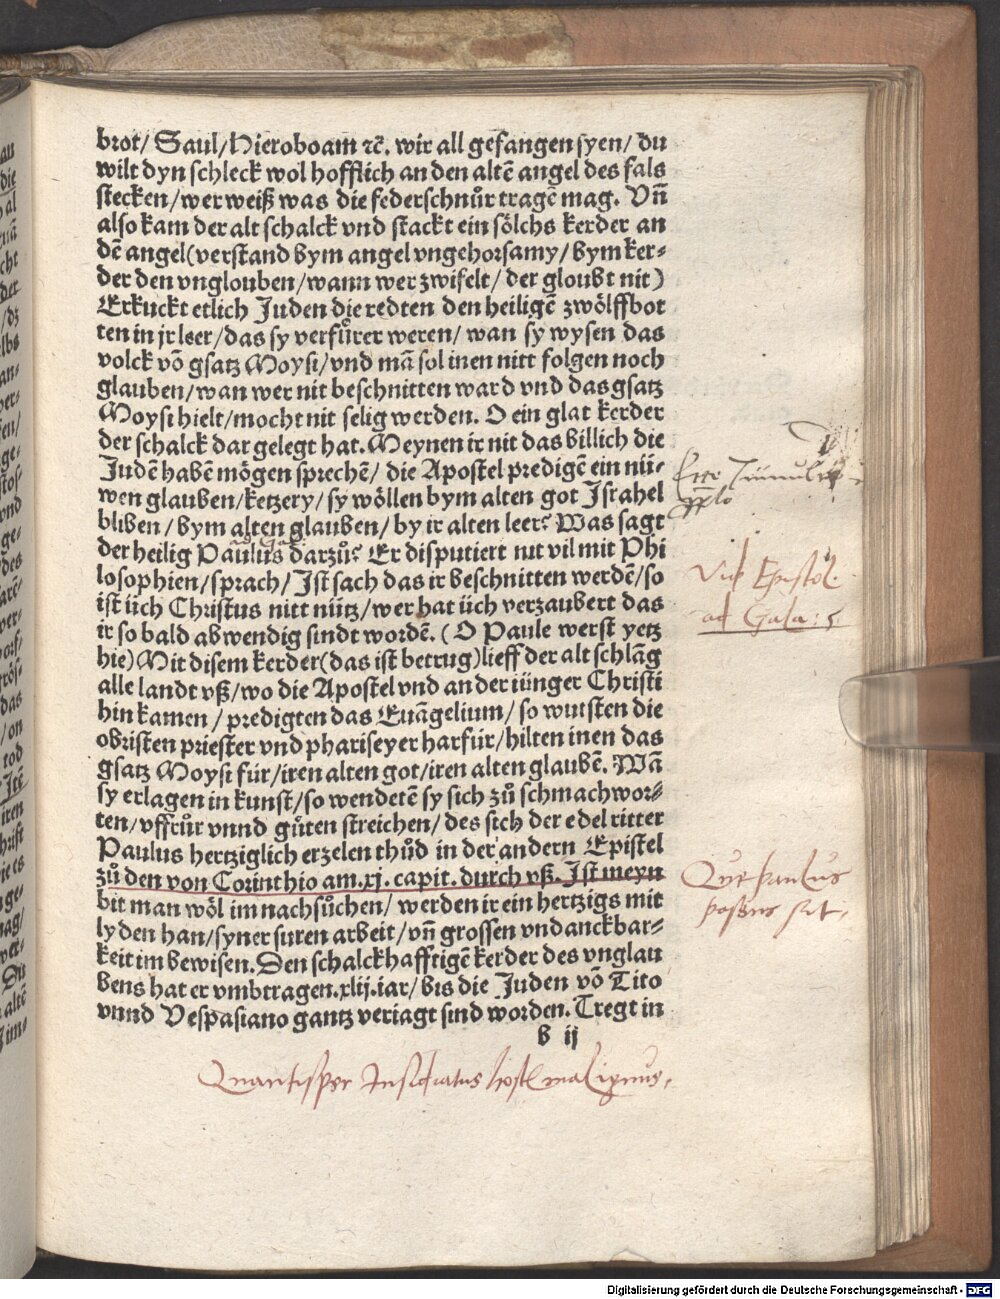 brot/ Saul/ Hieroboam ⁊c̃. wir all gefangen syen/ du
wilt dyn schleck wol hofflich an den altẽ angel des fals
stecken/ wer weiß was die federschnůr tragẽ mag. Vñ
also kam der alt schalck vnd stackt ein sölchs kerder an
dẽ angel (verstand bym angel vngehorsamy/ bym ker⸗
der den vnglouben/ wann wer zwifelt/ der gloubt nit)
Erkuckt etlich Juden die redten den heiligẽ zwölffbot
ten in jr leer/ das sy verfůrer weren/ wan sy wysen das
volck võ gsatz Moysi/ vnd mã sol inen nitt folgen noch
glauben/ wan wer nit beschnitten ward vnd das gsatz
Moysi hielt/ mocht nit selig werden. O ein glat kerder
der schalck dar gelegt hat. Meynen ir nit das billich die
Judẽ habẽ mögen sprechẽ/ die Apostel predigẽ ein nü⸗
wen glauben/ ketzery/ sy wöllen bym alten got Israhel
bliben/ bym alten glauben/ by ir alten leer? Was sagt
der heilig Paulus darzů? Er disputiert nit vil mit Phi
losophien/ sprach/ Ist sach das ir beschnitten werdẽ/ so
ist üch Christus nitt nütz/ wer hat üch verzaubert das
ir so bald abwendig sindt wordẽ. (O Paule werst yetz
hie) Mit disem kerder (das ist betrug) lieff der alt schlãg
alle landt vß/ wo die Apostel vnd ander iünger Christi
hin kamen/ predigten das Euãgelium/ so wutsten die
obristen priester vnd phariseyer harfür/ hilten inen das
gsatz Moysi für/ iren alten got/ iren alten glaubẽ. Wã
sy erlagen in kunst/ so wendetẽ sy sich zů schmachwor⸗
ten/ vffrůr vnnd gůten streichen/ des sich der edel ritter
Paulus hertziglich erzelen thůd in der andern Epistel
zů den von Corinthio am .xj. capit. durch vß. Ist meyn
bit man wöl im nachsůchen/ werden ir ein hertzigs mit
lyden han/ syner suren arbeit/ vñ grossen vndanckbar⸗
keit im bewisen. Den schalckhafftigẽ kerder des vnglau
bens hat er vmbtragen .xlij. iar/ bis die Juden võ Tito
vnnd Vespasiano gantz veriagt sind worden. Tregt in
b ij
Vide Epistol.
ad Gala: 5.
Que paulus
passus sit.
Quantisper Insidiatus hostis malignus.